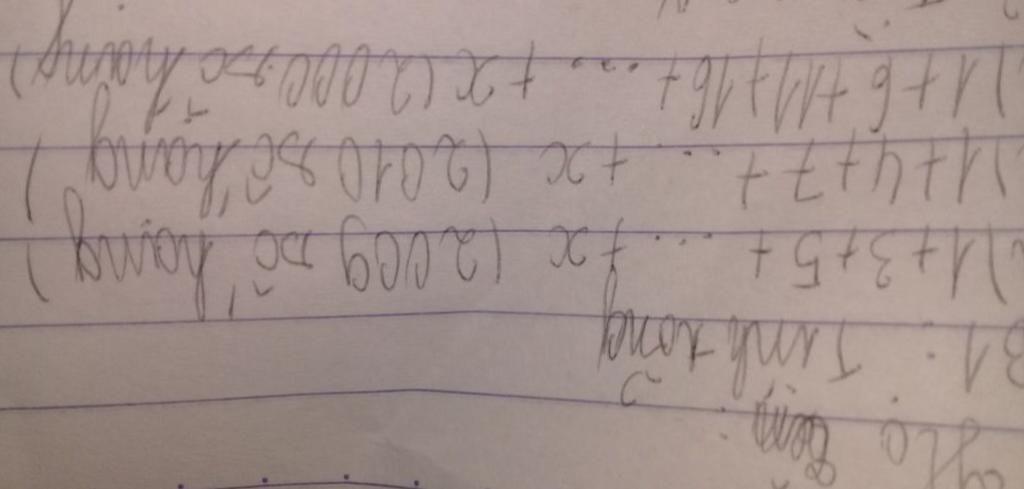 B1: Tính tổng
)1+3+5+ ... +x (2009 số hạng)
)1+4+7+ ... +x (2010 số hạng)
)1+6+11+16+ ... +x (2000 số hạng)